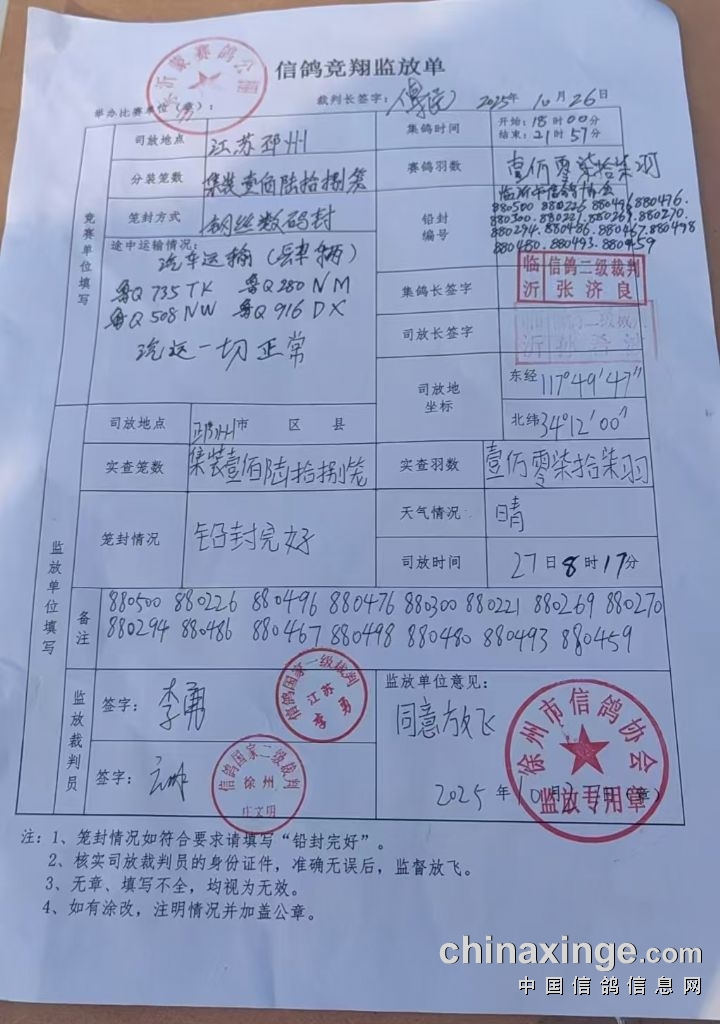 信鸽竞翔监放单
沂蒙赛鸽公棚
举办比赛单位(章):
裁判长签字:
2025年10月26日
司放地点 江苏邳州
集鸽时间 开始:18时00分
结束:21时57分
分装笼数 集装壹佰陆拾捌笼
赛鸽羽数 壹万零柒拾柒羽
笼封方式 钢丝数码封
铅封编号 临沂市信鸽协会
880500 880226 880496 880476.
880300.880221.880269.880270.
880294.880486.880467.880498
880480.880493.880459
竞赛单位填写
途中运输情况:
汽车运输(肆辆)
鲁Q 735TK 鲁Q 280NM
鲁Q 508NW 鲁Q 916DX
汽运一切正常
集鸽长签字
临沂 信鸽二级裁判 张济良
司放长签字
司放地坐标
东经 117°49′47″
北纬 34°12′00″
监放单位填写
司放地点 邳州市 区 县
实查笼数 集装壹佰陆拾捌笼
实查羽数 壹万零柒拾柒羽
笼封情况 铅封完好
天气情况 晴
司放时间 27日8时17分
备注
880500 880226 880496 880476 880300 880221 880269 880270
880294 880486 880467 880498 880480 880493 880459
监放裁判员
签字: 李勇
信鸽国家一级裁判
江苏
李勇
签字:
信鸽国家二级裁判
徐州
庄文明
监放单位意见:
同意放飞
徐州市信鸽协会
监放专用章
2025年10月 日(章)
注:1、笼封情况如符合要求请填写“铅封完好”。
2、核实司放裁判员的身份证件,准确无误后,监督放飞。
3、无章、填写不全,均视为无效。
4、如有涂改,注明情况并加盖公章。
chinaxinge.com
中国信鸽信息网